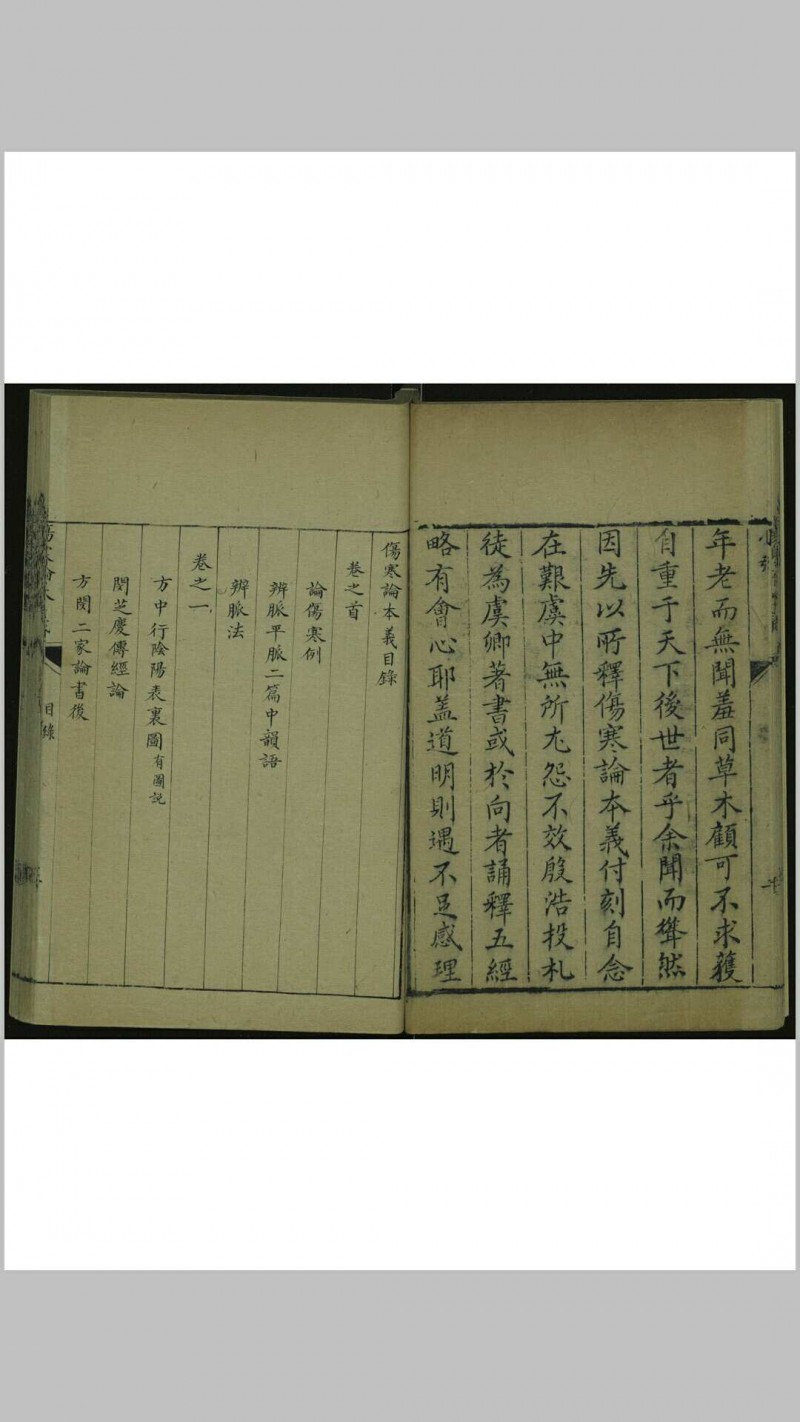 年老而無聞羞同草木顧可不求獲
自重于天下後世者乎余聞而聳然
因先以所釋傷寒論本義付刻自念
在艱虞中無所尤怨不效殷浩投札
徒為虞卿著書或於向者誦釋五經
略有會心耶盖道明則遇不足感理
傷寒論本義目錄
卷之首
論傷寒例
辨脈平脈二篇中韻語
辨脈法
卷之一
方中行陰陽表裏圖有圖說
閔芝慶傳經論
方閔二家論書後
目錄